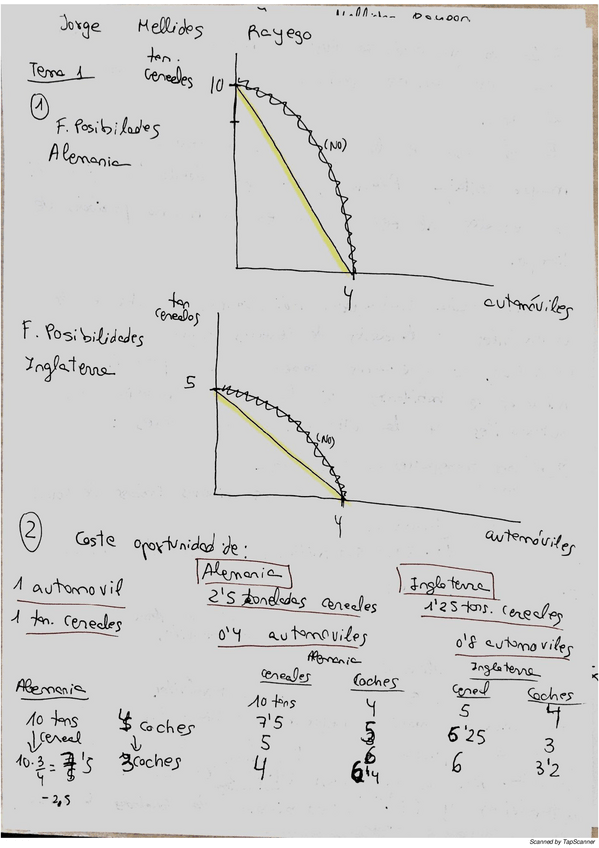 Jorge Mellides Rayego
Tema 1
ton.
cereales
10
1
F. Posibilades
Alemania
(NO)
4
automóviles
F. Posibilidades
Inglaterra
ton
cereales
5
(NO)
4
automóviles
2 Coste oportunidad de:
Alemania Inglaterra
1 automovil 2'5 toneladas cereales 1'25 tons. cereales
1 ton. cereales 0'4 automóviles 0'8 automoviles
Alemania Inglaterra
Alemania cereales Coches Cereal Coches
10 tons 4 coches 10 tons 4 5 4
↓ cereal ↓ 7'5 6'25 3
10·3/4 = 7'5 3 coches 5
4 6'4 6 3'2
-2,5
Scanned by TapScanner